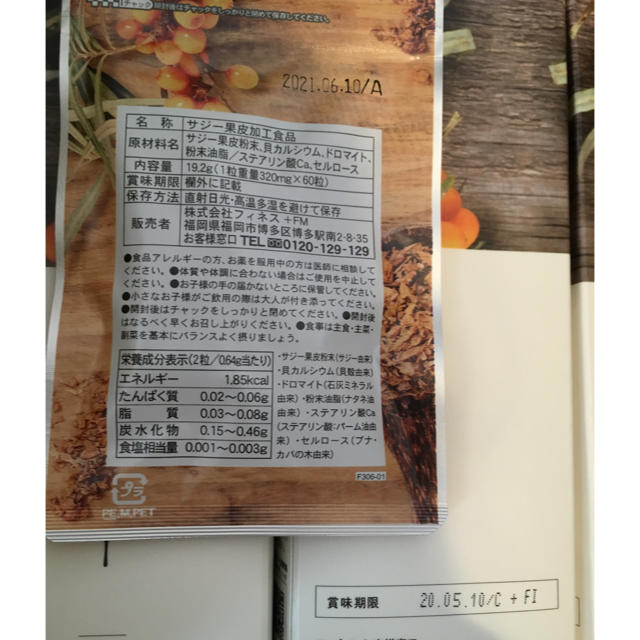 チャック 開封後はチャックをしっかりと閉めて保存してください。
2021.06.10/A
名 称 サジー果皮加工食品
原材料名 サジー果皮粉末、貝カルシウム、ドロマイト、
粉末油脂／ステアリン酸Ca、セルロース
内容量 19.2g（1粒重量320mg×60粒）
賞味期限 欄外に記載
保存方法 直射日光・高温多湿を避けて保存
販売者 株式会社フィネス +FM
福岡県福岡市博多区博多駅南2-8-35
お客様窓口 TEL 0120-129-129
●食品アレルギーの方、お薬を服用中の方は医師に相談して
ください。●体質や体調に合わない場合はご使用を中止して
ください。●お子様の手の届かないところに保管してください。
●小さなお子様がご飲用の際は大人が付き添ってください。
●開封後はチャックをしっかりと閉めてください。●開封後
はなるべく早くお召し上がりください。●食事は主食・主菜・
副菜を基本にバランスよく摂りましょう。
栄養成分表示（2粒／0.64g当たり）
エネルギー 1.85kcal
たんぱく質 0.02〜0.06g
脂 質 0.03〜0.08g
炭水化物 0.15〜0.46g
食塩相当量 0.001〜0.003g
・サジー果皮粉末（サジー由来）
・貝カルシウム（貝殻由来）
・ドロマイト（石灰ミネラル
由来）・粉末油脂（ナタネ油
由来）・ステアリン酸Ca
（ステアリン酸：パーム油由
来）・セルロース（ブナ・
カバの木由来）
F306-01
プラ
PE,M,PET
賞味期限 20.05.10/C + FI